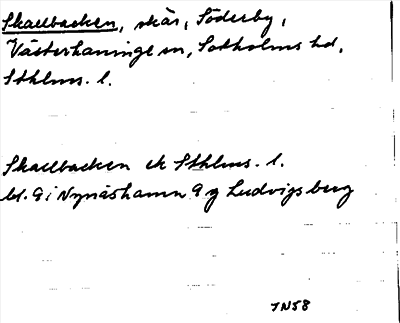 Skaelbacken, skär, Söderby,
Västerhaninge sn, Sotholms hd,
Sthlms. l.
Skaelbacken ek Sthlms. l.
bl. 9 i Nynäshamn 9 g Ludvigsberg
JN58